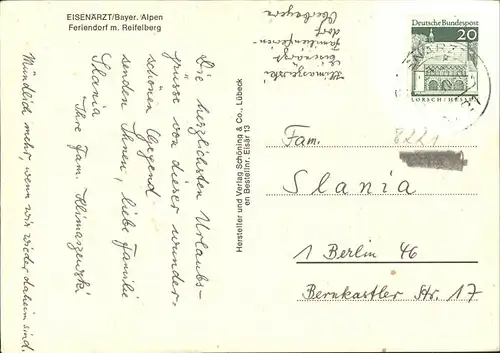 EISENÄRZT/Bayer. Alpen
Feriendorf m. Reifelberg
Die herzlichsten Urlaubs-
grüsse von dieser wunder-
schönen Gegend
senden Ihnen, liebe Familie
Slania
Ihre Fam. Klimaszewski
Mündlich mehr, wenn wir wieder daheim sind.
Hersteller und Verlag Schöning & Co., Lübeck
en Bestellnr. Eisär 13
Klimaszewski
Eisenärzt
Familienferien-
dorf
Oberbayern
Deutsche Bundespost
20
LORSCH/HESSEN
8221
Fam.
Slania
1 Berlin 46
Bernkastler Str. 17